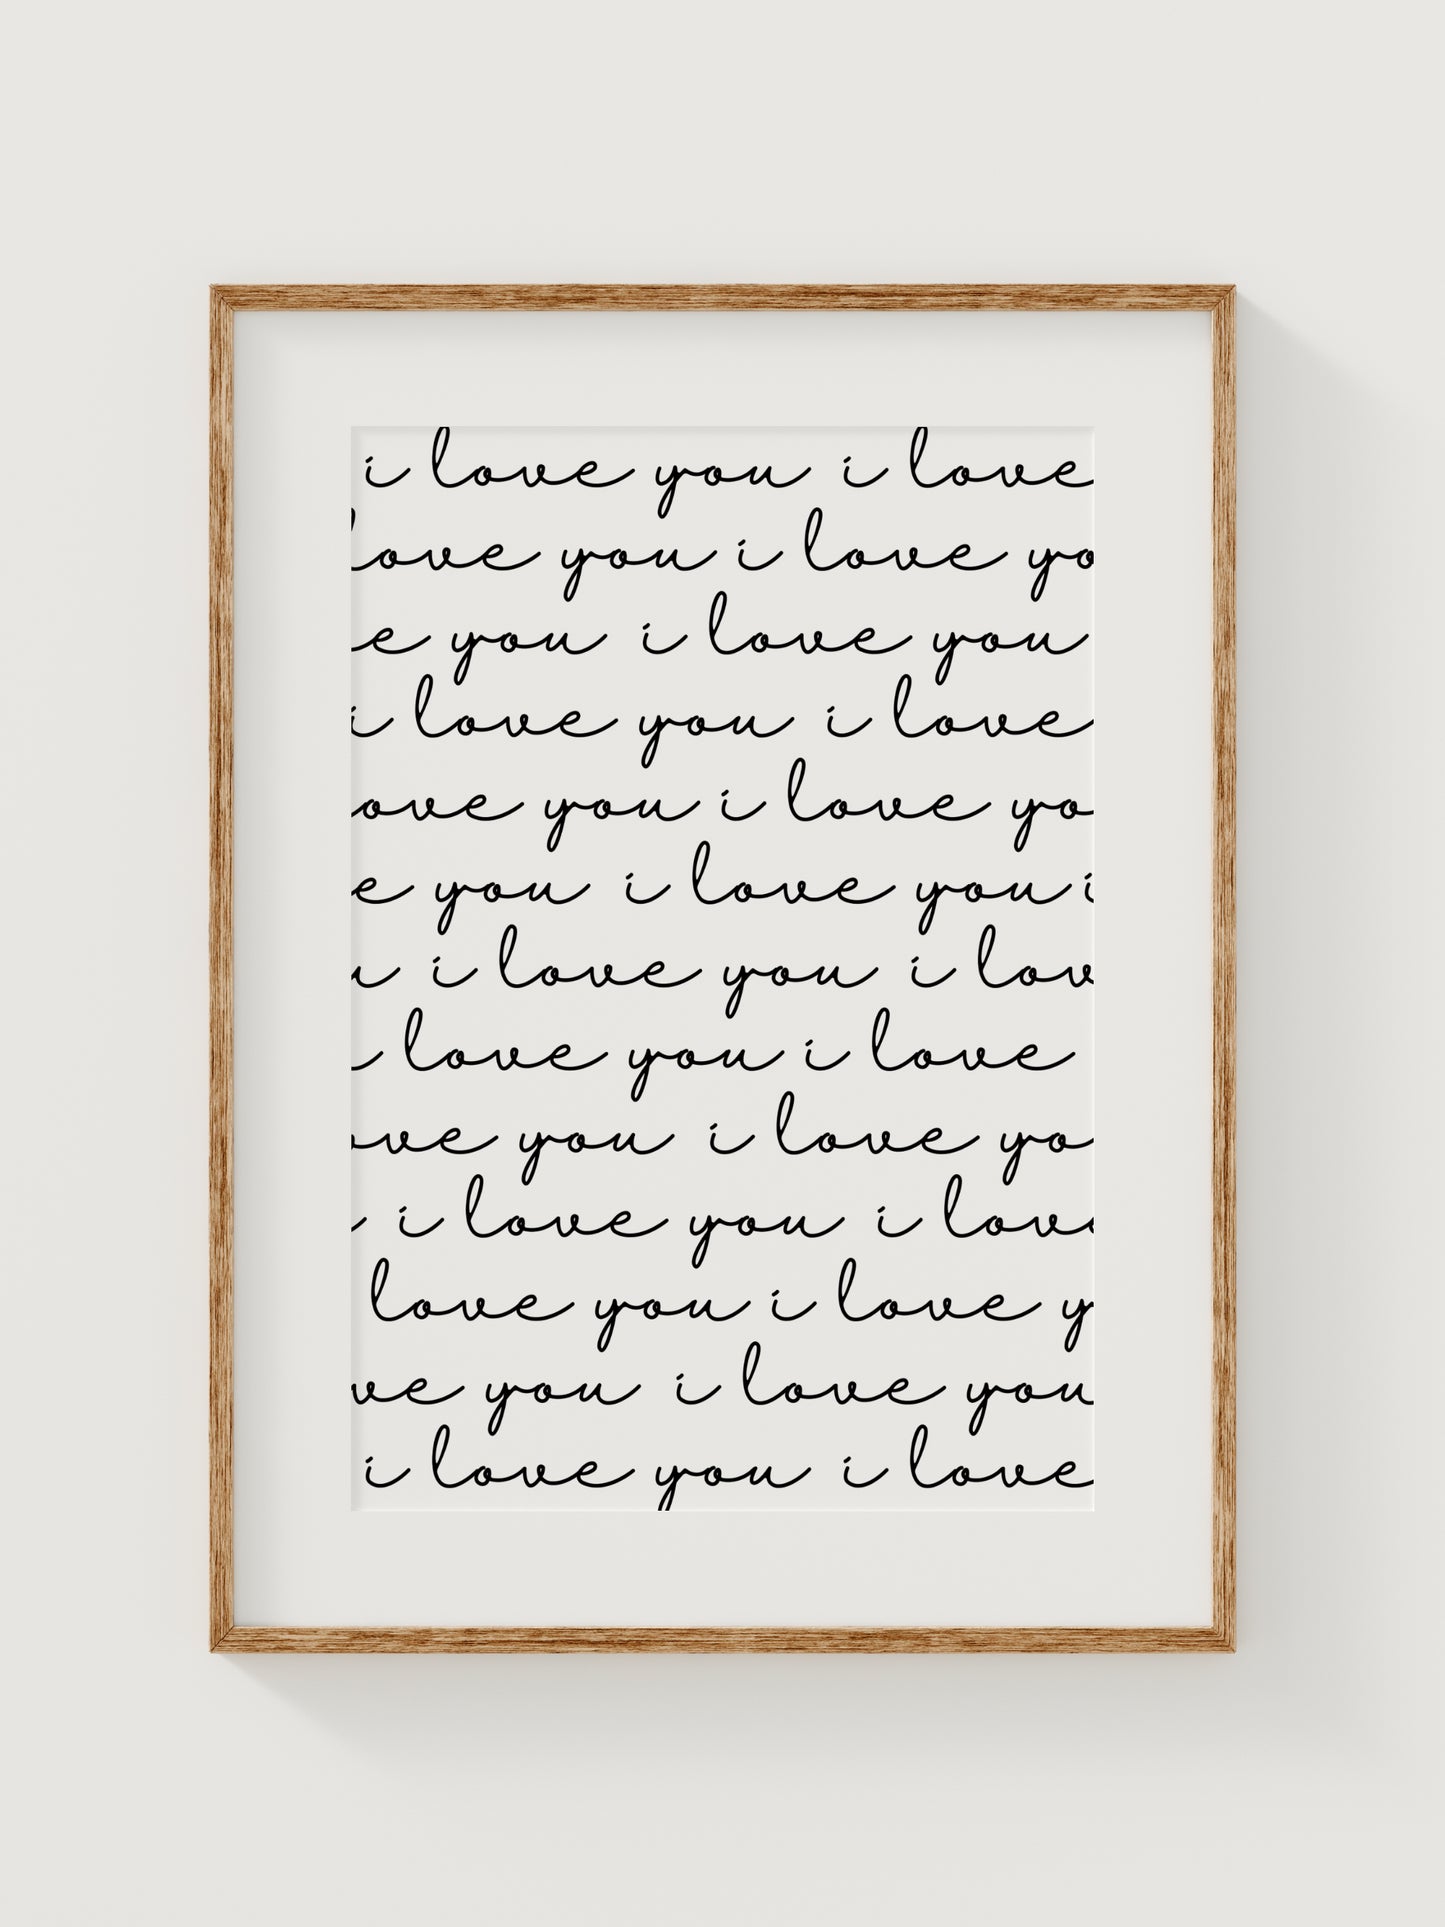 i love you i love
love you i love yo
e you i love you
i love you i love
ove you i love yo
e you i love you i
u i love you i lov
love you i love
ove you i love yo
i love you i lov
love you i love y
ve you i love you
i love you i love